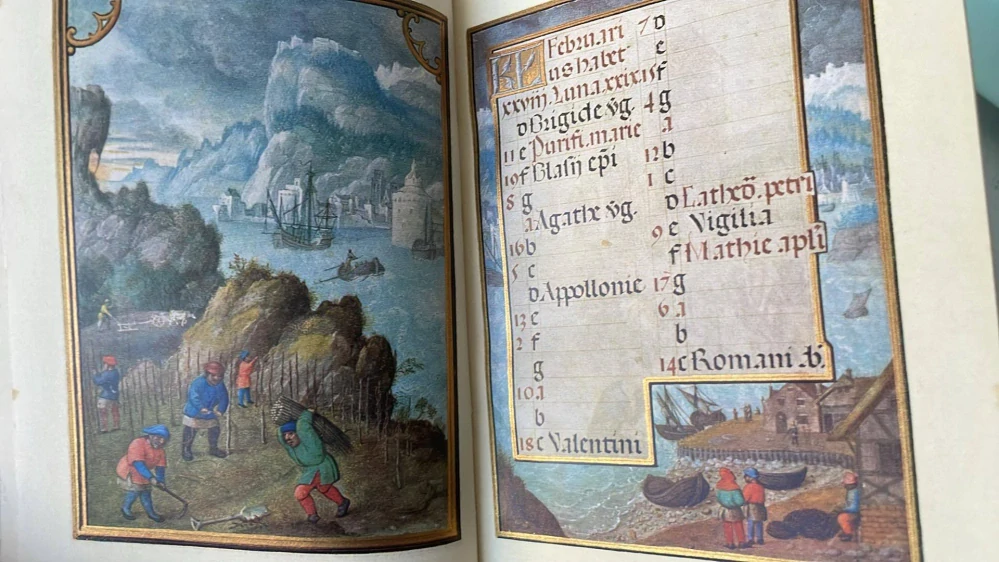 KL Februari
us habet
xxviij. Luna. xxix.
d Brigide vg.
11 e Purifi. marie
19 f Blasij epi
8 g
A Agathe vg.
16 b
5 c
d Appollonie
13 e
2 f
g
10 A
b
18 c Valentini
7 d
e
15 f
4 g
A
12 b
1 c
d Cathed. petri
9 e Vigilia
f Mathie apli
17 g
6 A
b
14 c Romani ab.